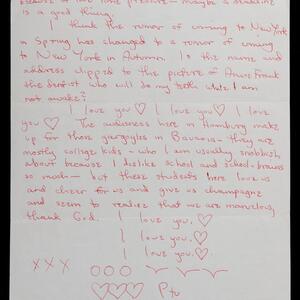 because of low tone pressure — maybe a deadline
is a good thing.
I think the rumor of coming to New York
in Spring has changed to a rumor of coming
to New York in Autumn. Is the name and
address clipped to the picture of Anne Frank
the dentist who will do my teeth while I am
not awake?
I love you ♡ I love you ♡ I love
you ♡ The audiences here in Hamburg make
up for those gargoyles in Bavaria - they are
mostly college kids - who I am usually snobbish
about because I dislike school and school-brains
so much - but these students here love us
and cheer for us and give us champagne
and seem to realize that we are marvelous,
thank God. I love you. ♡
I love you. ♡
I love you. ♡
X X X
O O O
♡♡♡ P